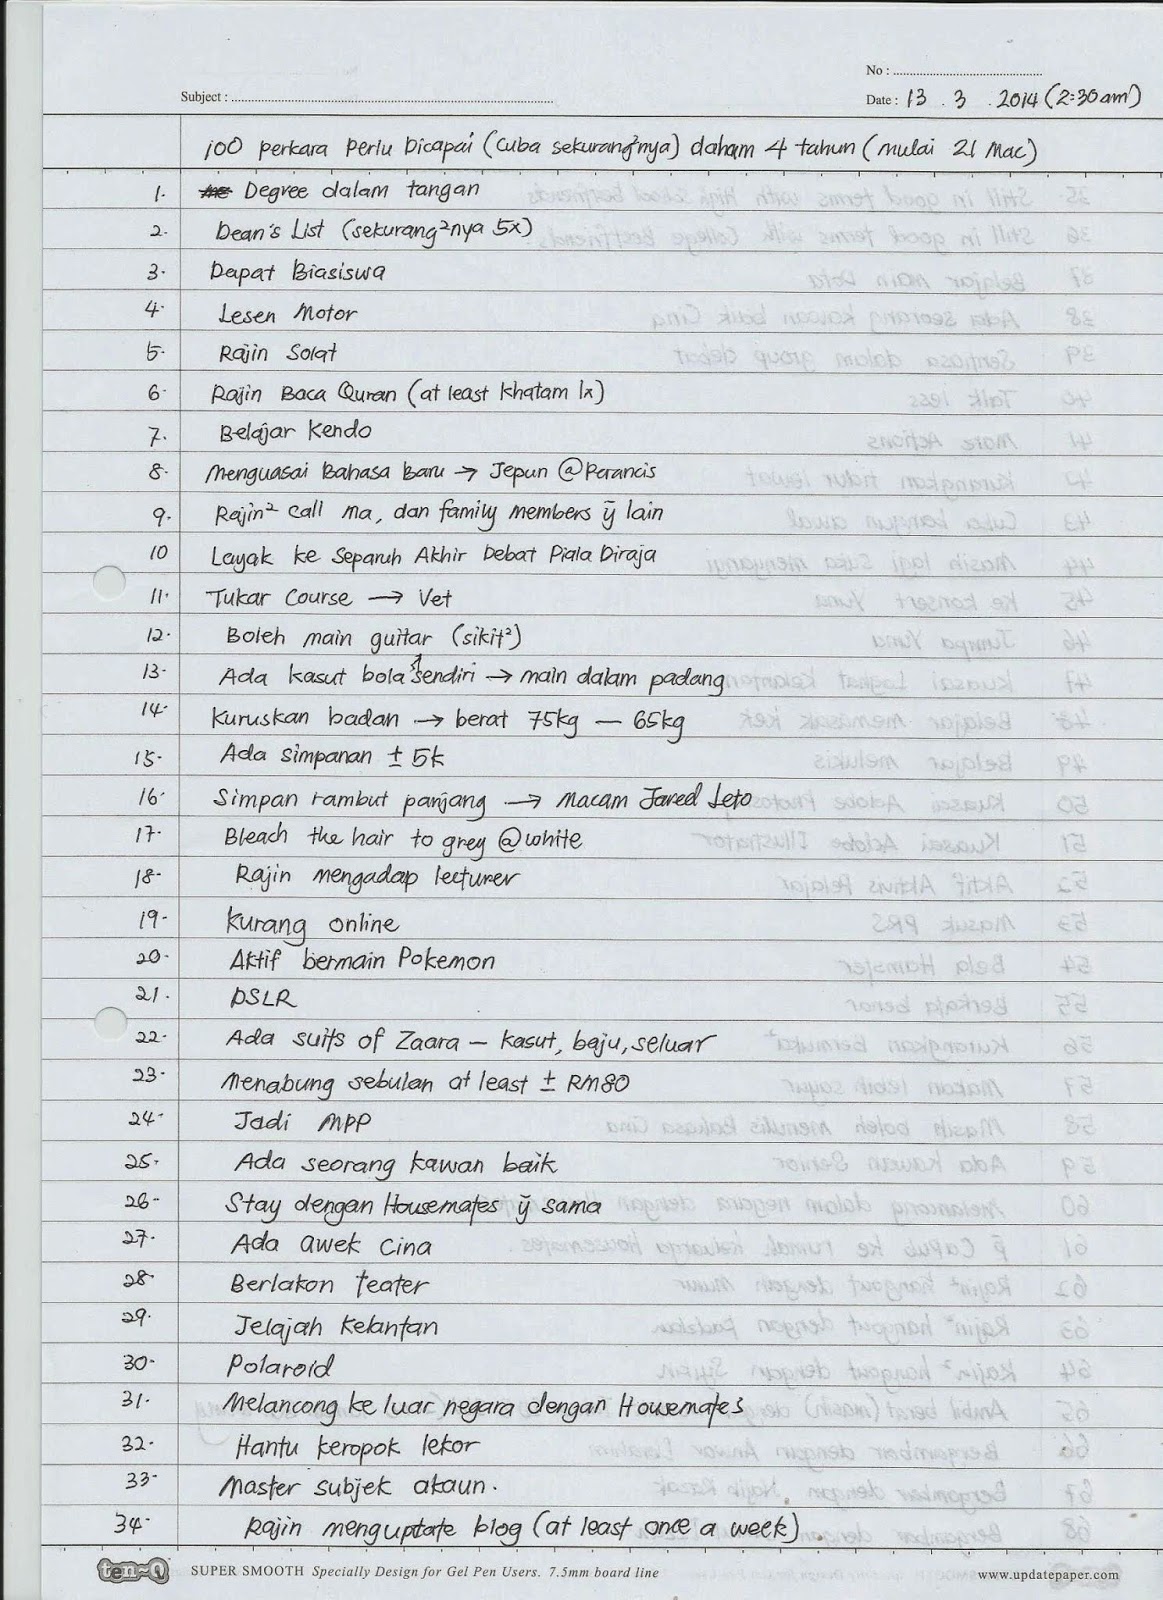 No : ..........
Subject : ..........
Date : 13 . 3 . 2014 (2:30am)
100 perkara Perlu Dicapai (Cuba sekurang²nya) daham 4 tahun (mulai 21 Mac)
1. Degree dalam tangan
2. Dean's List (sekurang²nya 5x)
3. Dapat Biasiswa
4. Lesen Motor
5. Rajin Solat
6. Rajin Baca Quran (at least khatam 1x)
7. Belajar Kendo
8. Menguasai Bahasa Baru → Jepun @ Perancis
9. Rajin² call Ma, dan family members ȳ lain
10 Layak ke Separuh Akhir Debat Piala Diraja
11. Tukar Course → Vet
12. Boleh main guitar (sikit²)
13. Ada kasut bola sendiri → main dalam padang
14. Kuruskan badan → berat 75kg — 65kg
15. Ada simpanan ± 5k
16. Simpan rambut panjang → Macam Jared Leto
17. Bleach the hair to grey @ white
18. Rajin mengadap lecturer
19. Kurang online
20. Aktif bermain Pokemon
21. DSLR
22. Ada suits of Zaara – kasut, baju, seluar
23. Menabung sebulan at least ± RM80
24. Jadi MPP
25. Ada seorang kawan baik
26. Stay dengan Housemates ȳ sama
27. Ada awek Cina
28. Berlakon teater
29. Jelajah Kelantan
30. Polaroid
31. Melancong ke luar negara dengan Housemates
32. Hantu keropok lekor
33. Master subjek akaun.
34. Rajin menguptate blog (at least once a week).
ten-Q SUPER SMOOTH Specially Design for Gel Pen Users. 7.5mm board line www.updatepaper.com